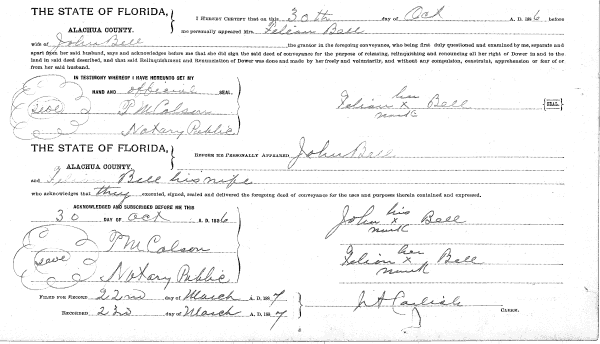 THE STATE OF FLORIDA,
ALACHUA COUNTY.
I HEREBY CERTIFY that on this 30th day of Oct A. D. 1886 before
me personally appeared Mrs. Felian Bell
wife of John Bell the grantor in the foregoing conveyance, who being first duly questioned and examined by me, separate and
apart from her said husband, says and acknowledges before me that she did sign the said deed of conveyance for the purpose of releasing, relinquishing and renouncing all her right of Dower in and to the
land in said deed described, and that said Relinquishment and Renunciation of Dower was done and made by her freely and voluntarily, and without any compulsion, constraint, apprehension or fear of or
from her said husband.
IN TESTIMONY WHEREOF I HAVE HEREUNTO SET MY
HAND AND official SEAL,
seal P M Colson
Notary Public
her
Felian x Bell SEAL.
mark
THE STATE OF FLORIDA,
ALACHUA COUNTY.
BEFORE ME PERSONALLY APPEARED John Bell
and Bell his wife
who acknowledges that they executed, signed, sealed and delivered the foregoing deed of conveyance for the uses and purposes therein contained and expressed.
ACKNOWLEDGED AND SUBSCRIBED BEFORE ME THIS
30 DAY OF Oct A. D. 1886
seal P M Colson
Notary Public
his
John x Bell
mark
her
Felian x Bell
mark
FILED FOR RECORD 22nd day of March A. D. 1887
RECORDED 23d day of March A. D. 1887
CLERK.